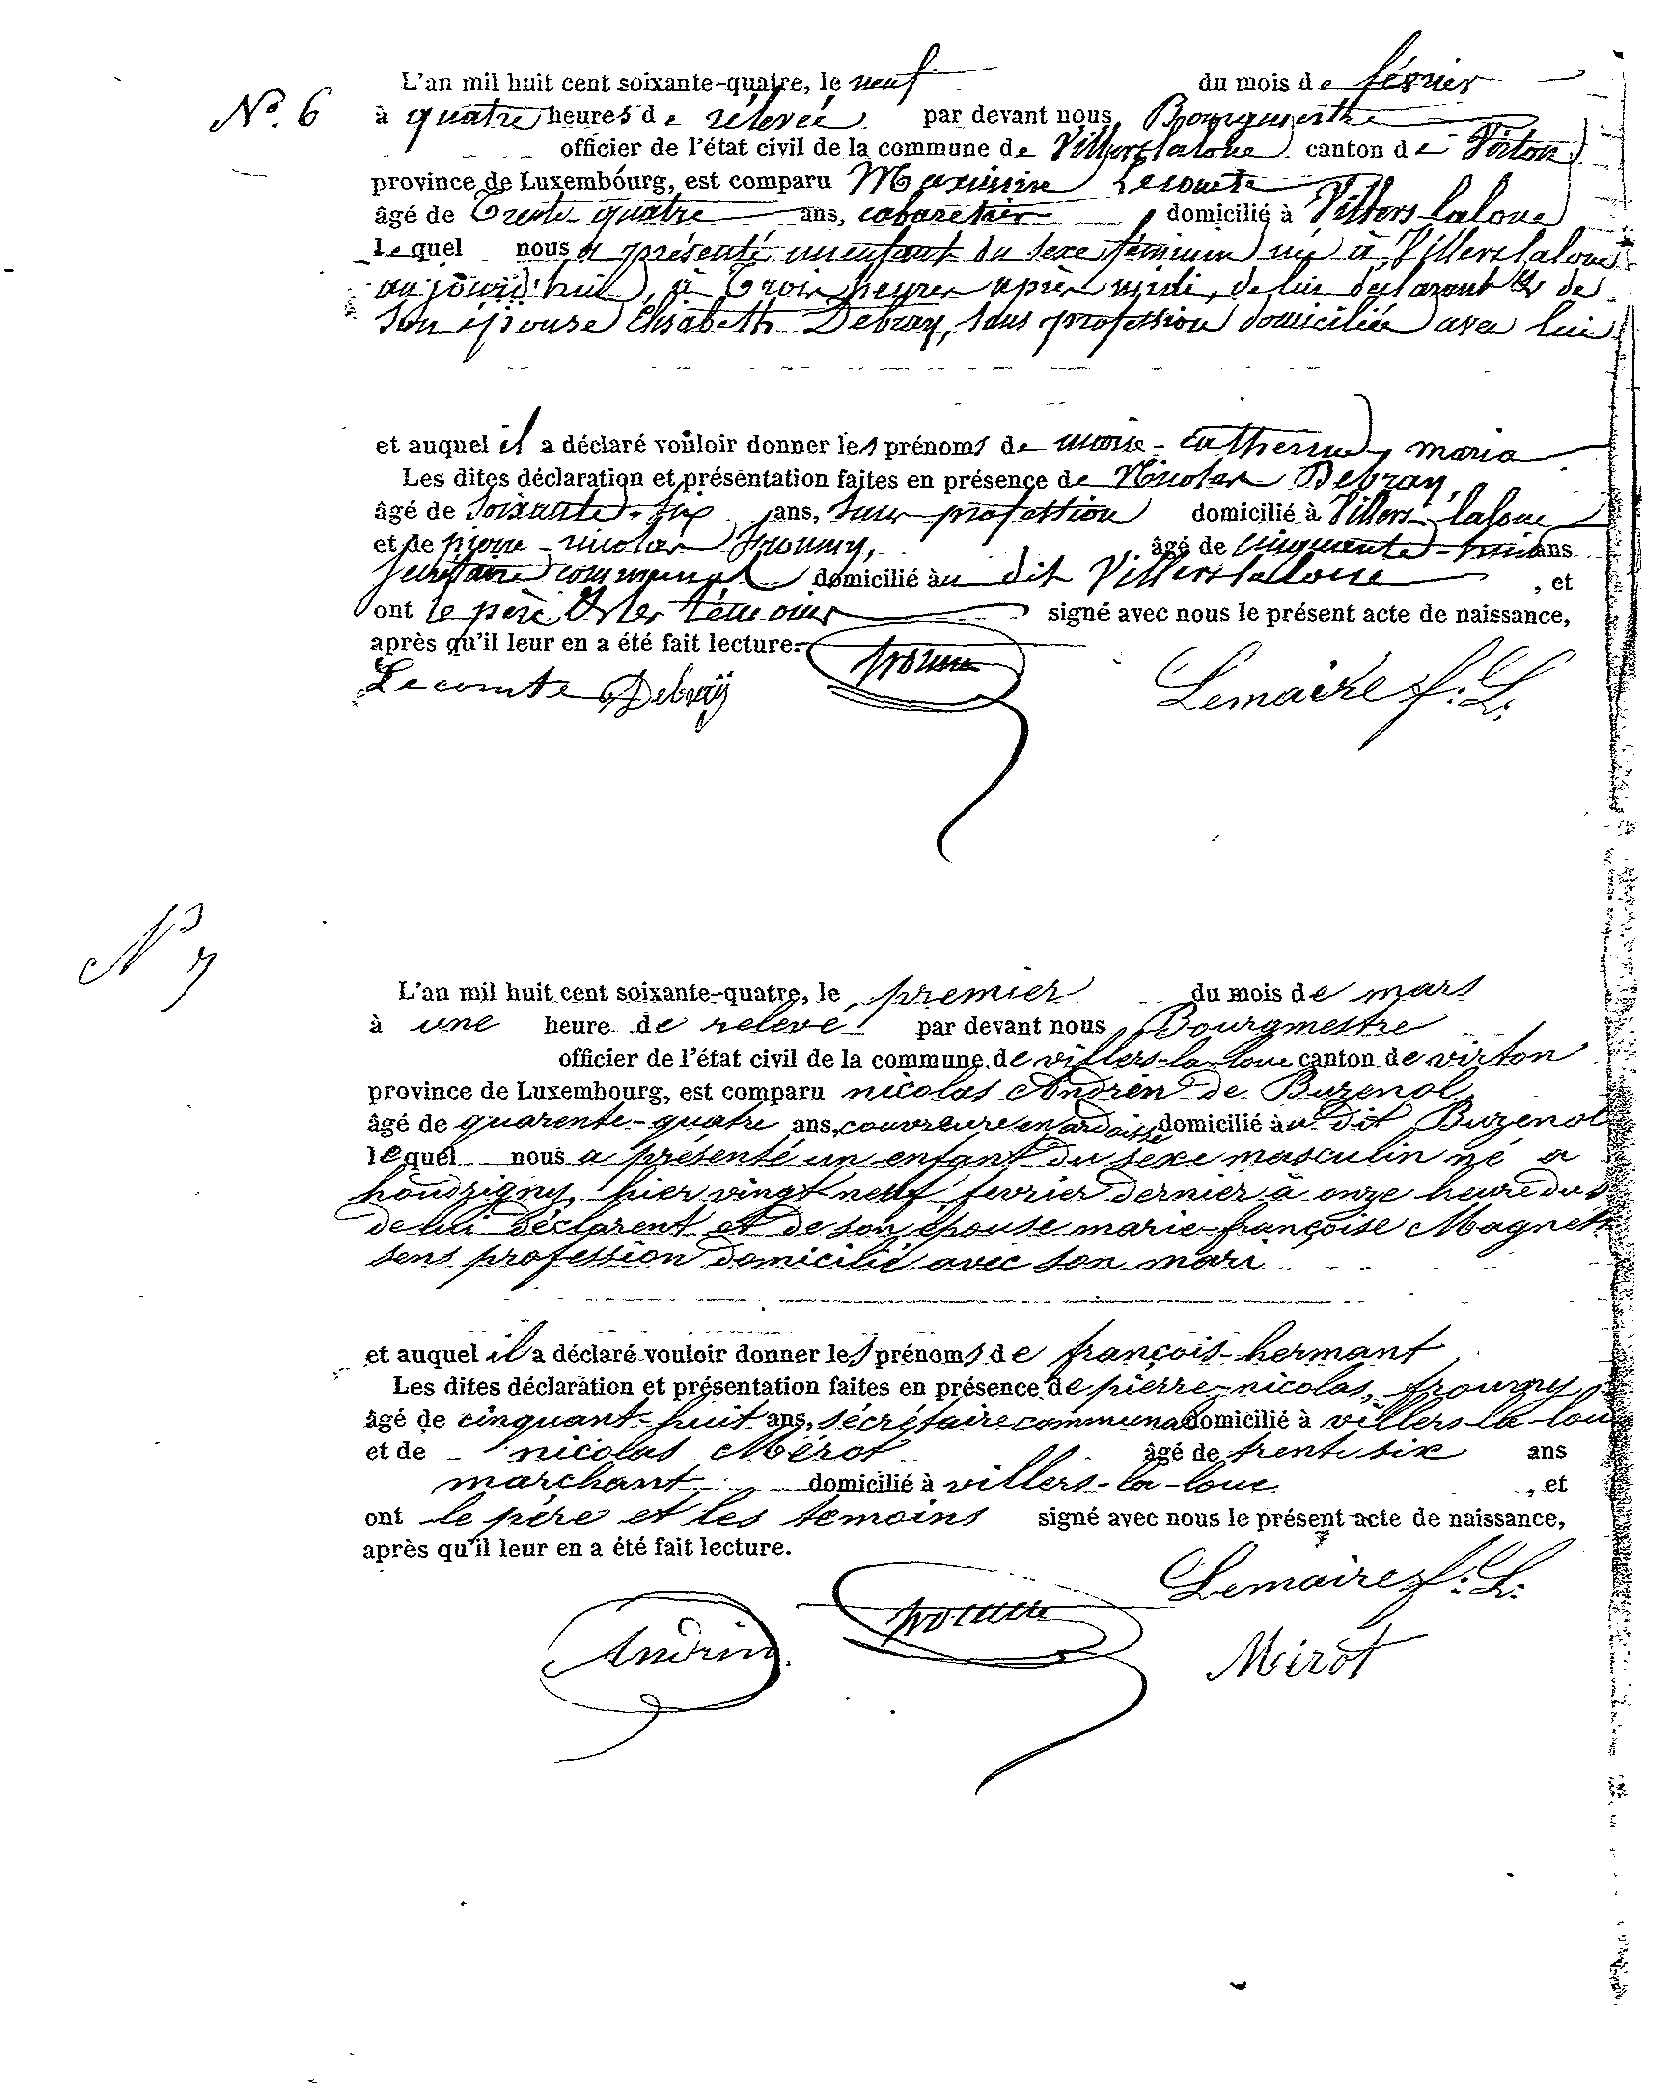 L'an mil huit cent soixante-quatre, le neuf du mois de février
N° 6 à quatre heures de rélevée par devant nous Bourgmestre
officier de l'état civil de la commune de Villers laloue canton de Virton
province de Luxembourg, est comparu Maximin Lecomte
âgé de Trente-quatre ans, cabaretier domicilié à Villers-laloue
lequel nous a présenté un enfant du sexe féminin né à Villers laloue
aujourd'hui, à Trois heures après midi, de lui déclarant & de
son épouse Elisabeth Debray, sans profession domiciliée avec lui
et auquel il a déclaré vouloir donner les prénoms de marie-catherine, maria
Les dites déclaration et présentation faites en présence de Nicolas Debray,
âgé de soixante-six ans, sans profession domicilié à Villers-laloue
et de pierre-nicolas frourny, âgé de cinquante-huit ans
secrétaire communal domicilié au dit Villers laloue , et
ont le père & les témoins signé avec nous le présent acte de naissance,
après qu'il leur en a été fait lecture.
Lecomte Debraÿ Lemaire f. L.
N° 7
L'an mil huit cent soixante-quatre, le premier du mois de mars
à une heure de relevé par devant nous Bourgmestre
officier de l'état civil de la commune de villers-la-loue canton de virton
province de Luxembourg, est comparu nicolas Andrin de Buzenol
âgé de quarente-quatre ans, couvreure en ardoisse domicilié au dit Buzenol
lequel nous a présenté un enfant du sexe masculin né a
houdrigny, hier vingt-neuf fevrier dernier à onze heure du s
de lui déclarent et de son epouse marie-françoise Magnet
sens profession domicilié avec son mari
et auquel il a déclaré vouloir donner les prénoms de françois-hermant
Les dites déclaration et présentation faites en présence de pierre-nicolas, frourny
âgé de cinquant-huit ans, sécrétaire communal domicilié à villers-la-loue
et de nicolas Mérot âgé de trente six ans
marchant domicilié à villers-la-loue , et
ont le père et les temoins signé avec nous le présent acte de naissance,
après qu'il leur en a été fait lecture.
Lemaire f. L.
Andrin Mirot